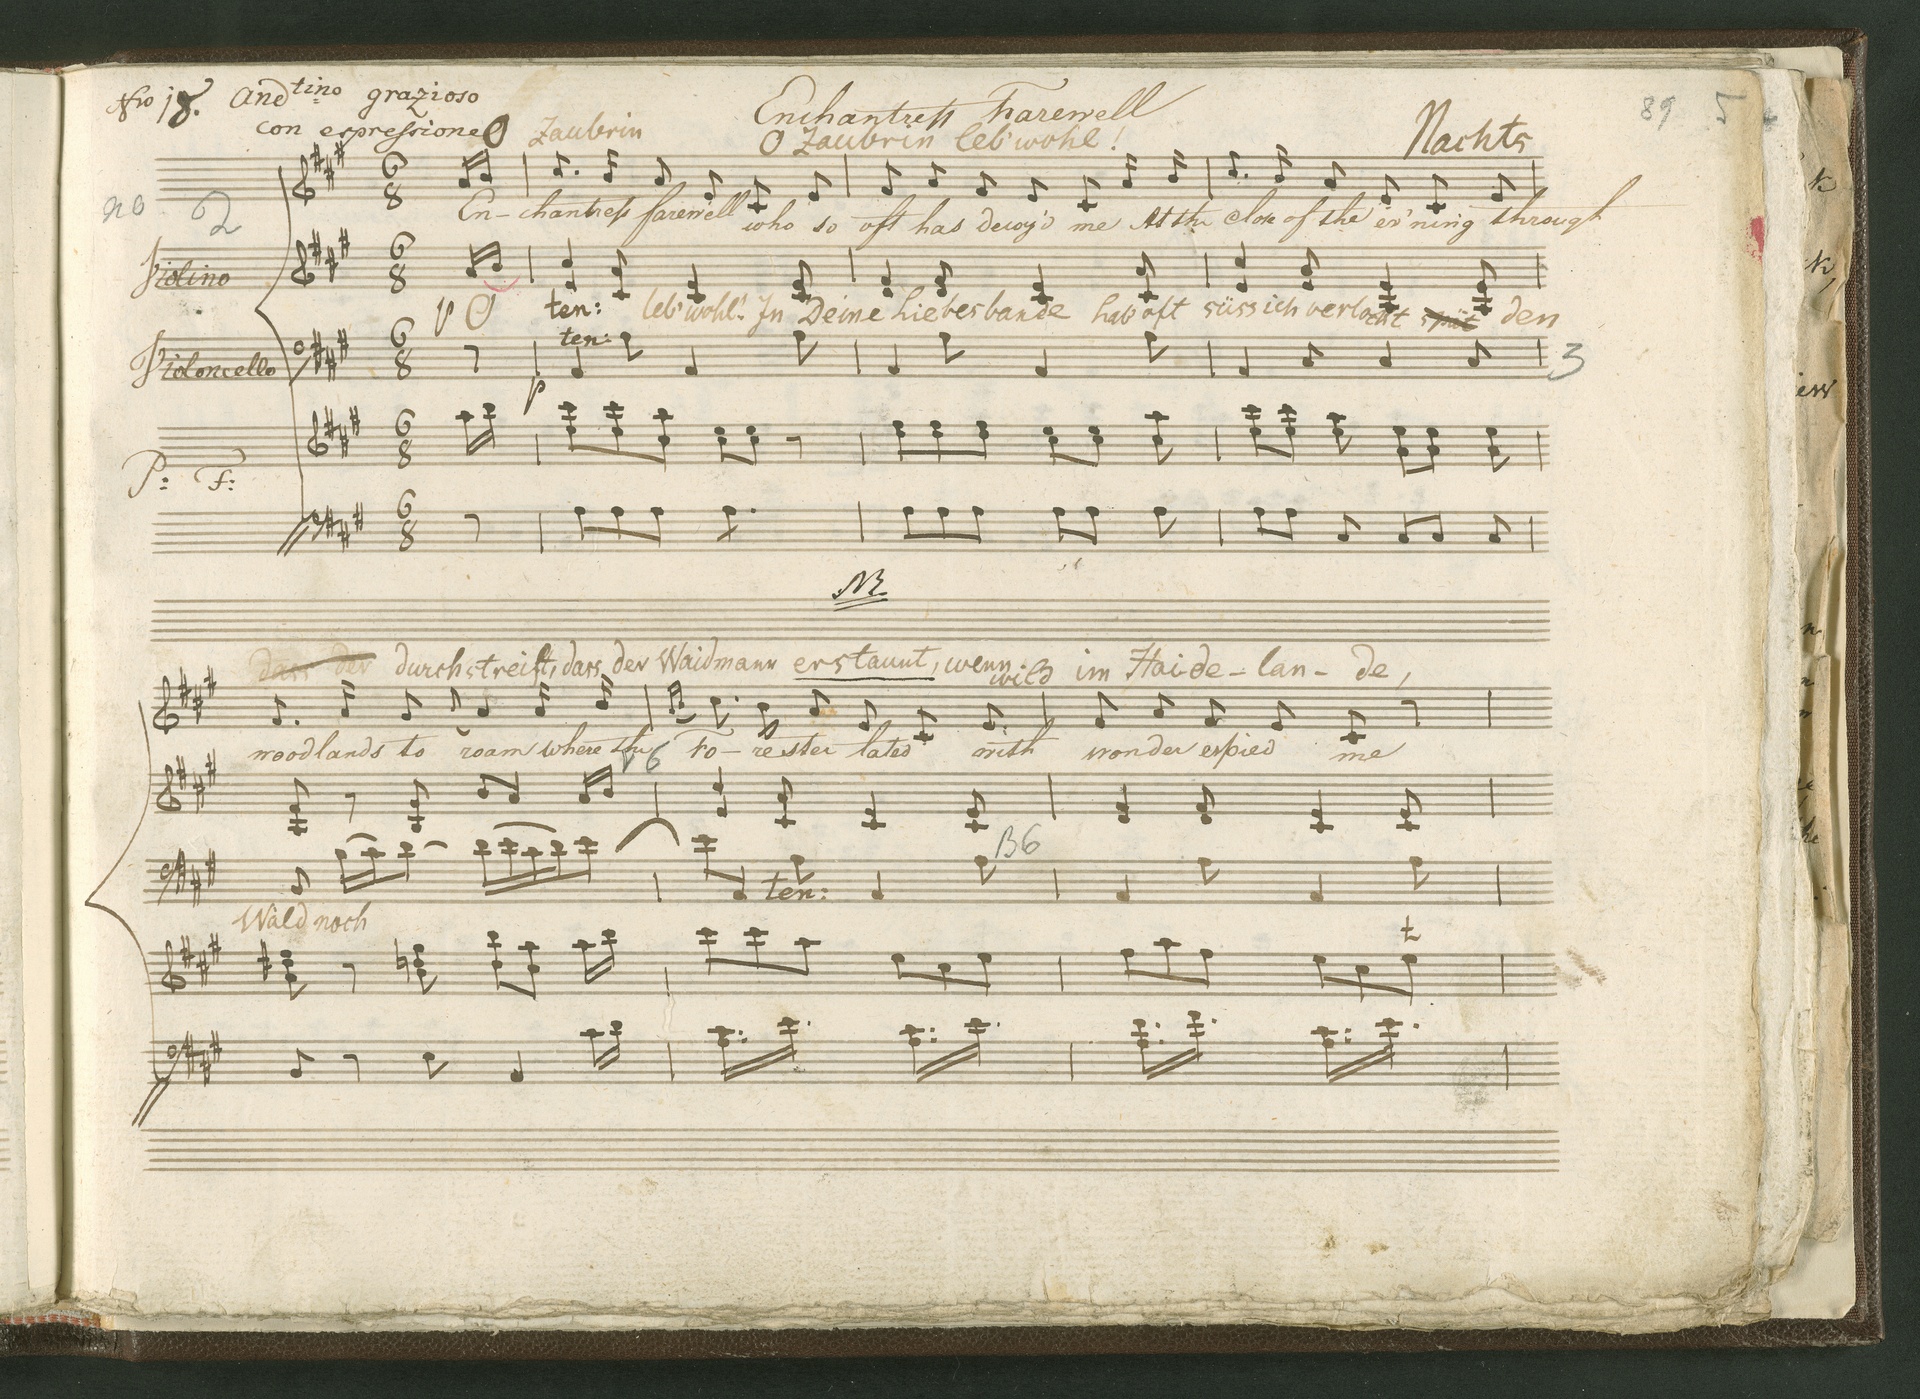 Nro 18. Andtino grazioso
con espressione
Enchantress Farewell
O Zaubrin leb'wohl!
89
O Zaubrin
Nachts
En- chantress farewell who so oft has decoy'd me At the close of the ev'ning through
no 2
Violino
p O ten: leb'wohl! In Deine Liebesbande hab' oft süss ich verlockt spät den
ten:
Violoncello
3
p
P: F:
NB
dass der durchstreift, dass der Waidmann erstaunt, wenn wild im Haide-lan- de,
woodlands to roam where the Fo- rester lated with wonder espied me
B6
ten:
Wald noch